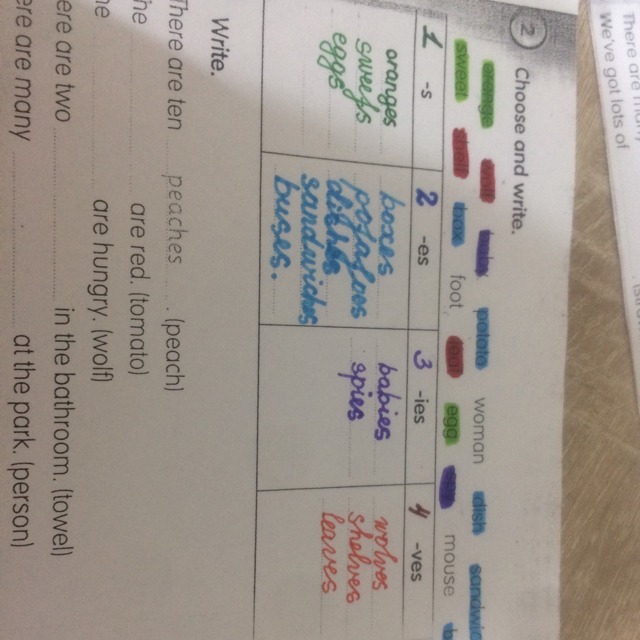 There are
We've got lots of
2 Choose and write.
orange potato woman dish sandwic
sweet box foot egg mouse
1 -s 2 -es 3 -ies 4 -ves
oranges boxes babies wolves
sweets spies shelves
eggs leaves
buses.
Write.
There are ten peaches. (peach)
he are red. (tomato)
he are hungry. (wolf)
ere are two in the bathroom. (towel)
ere are many at the park. (person)